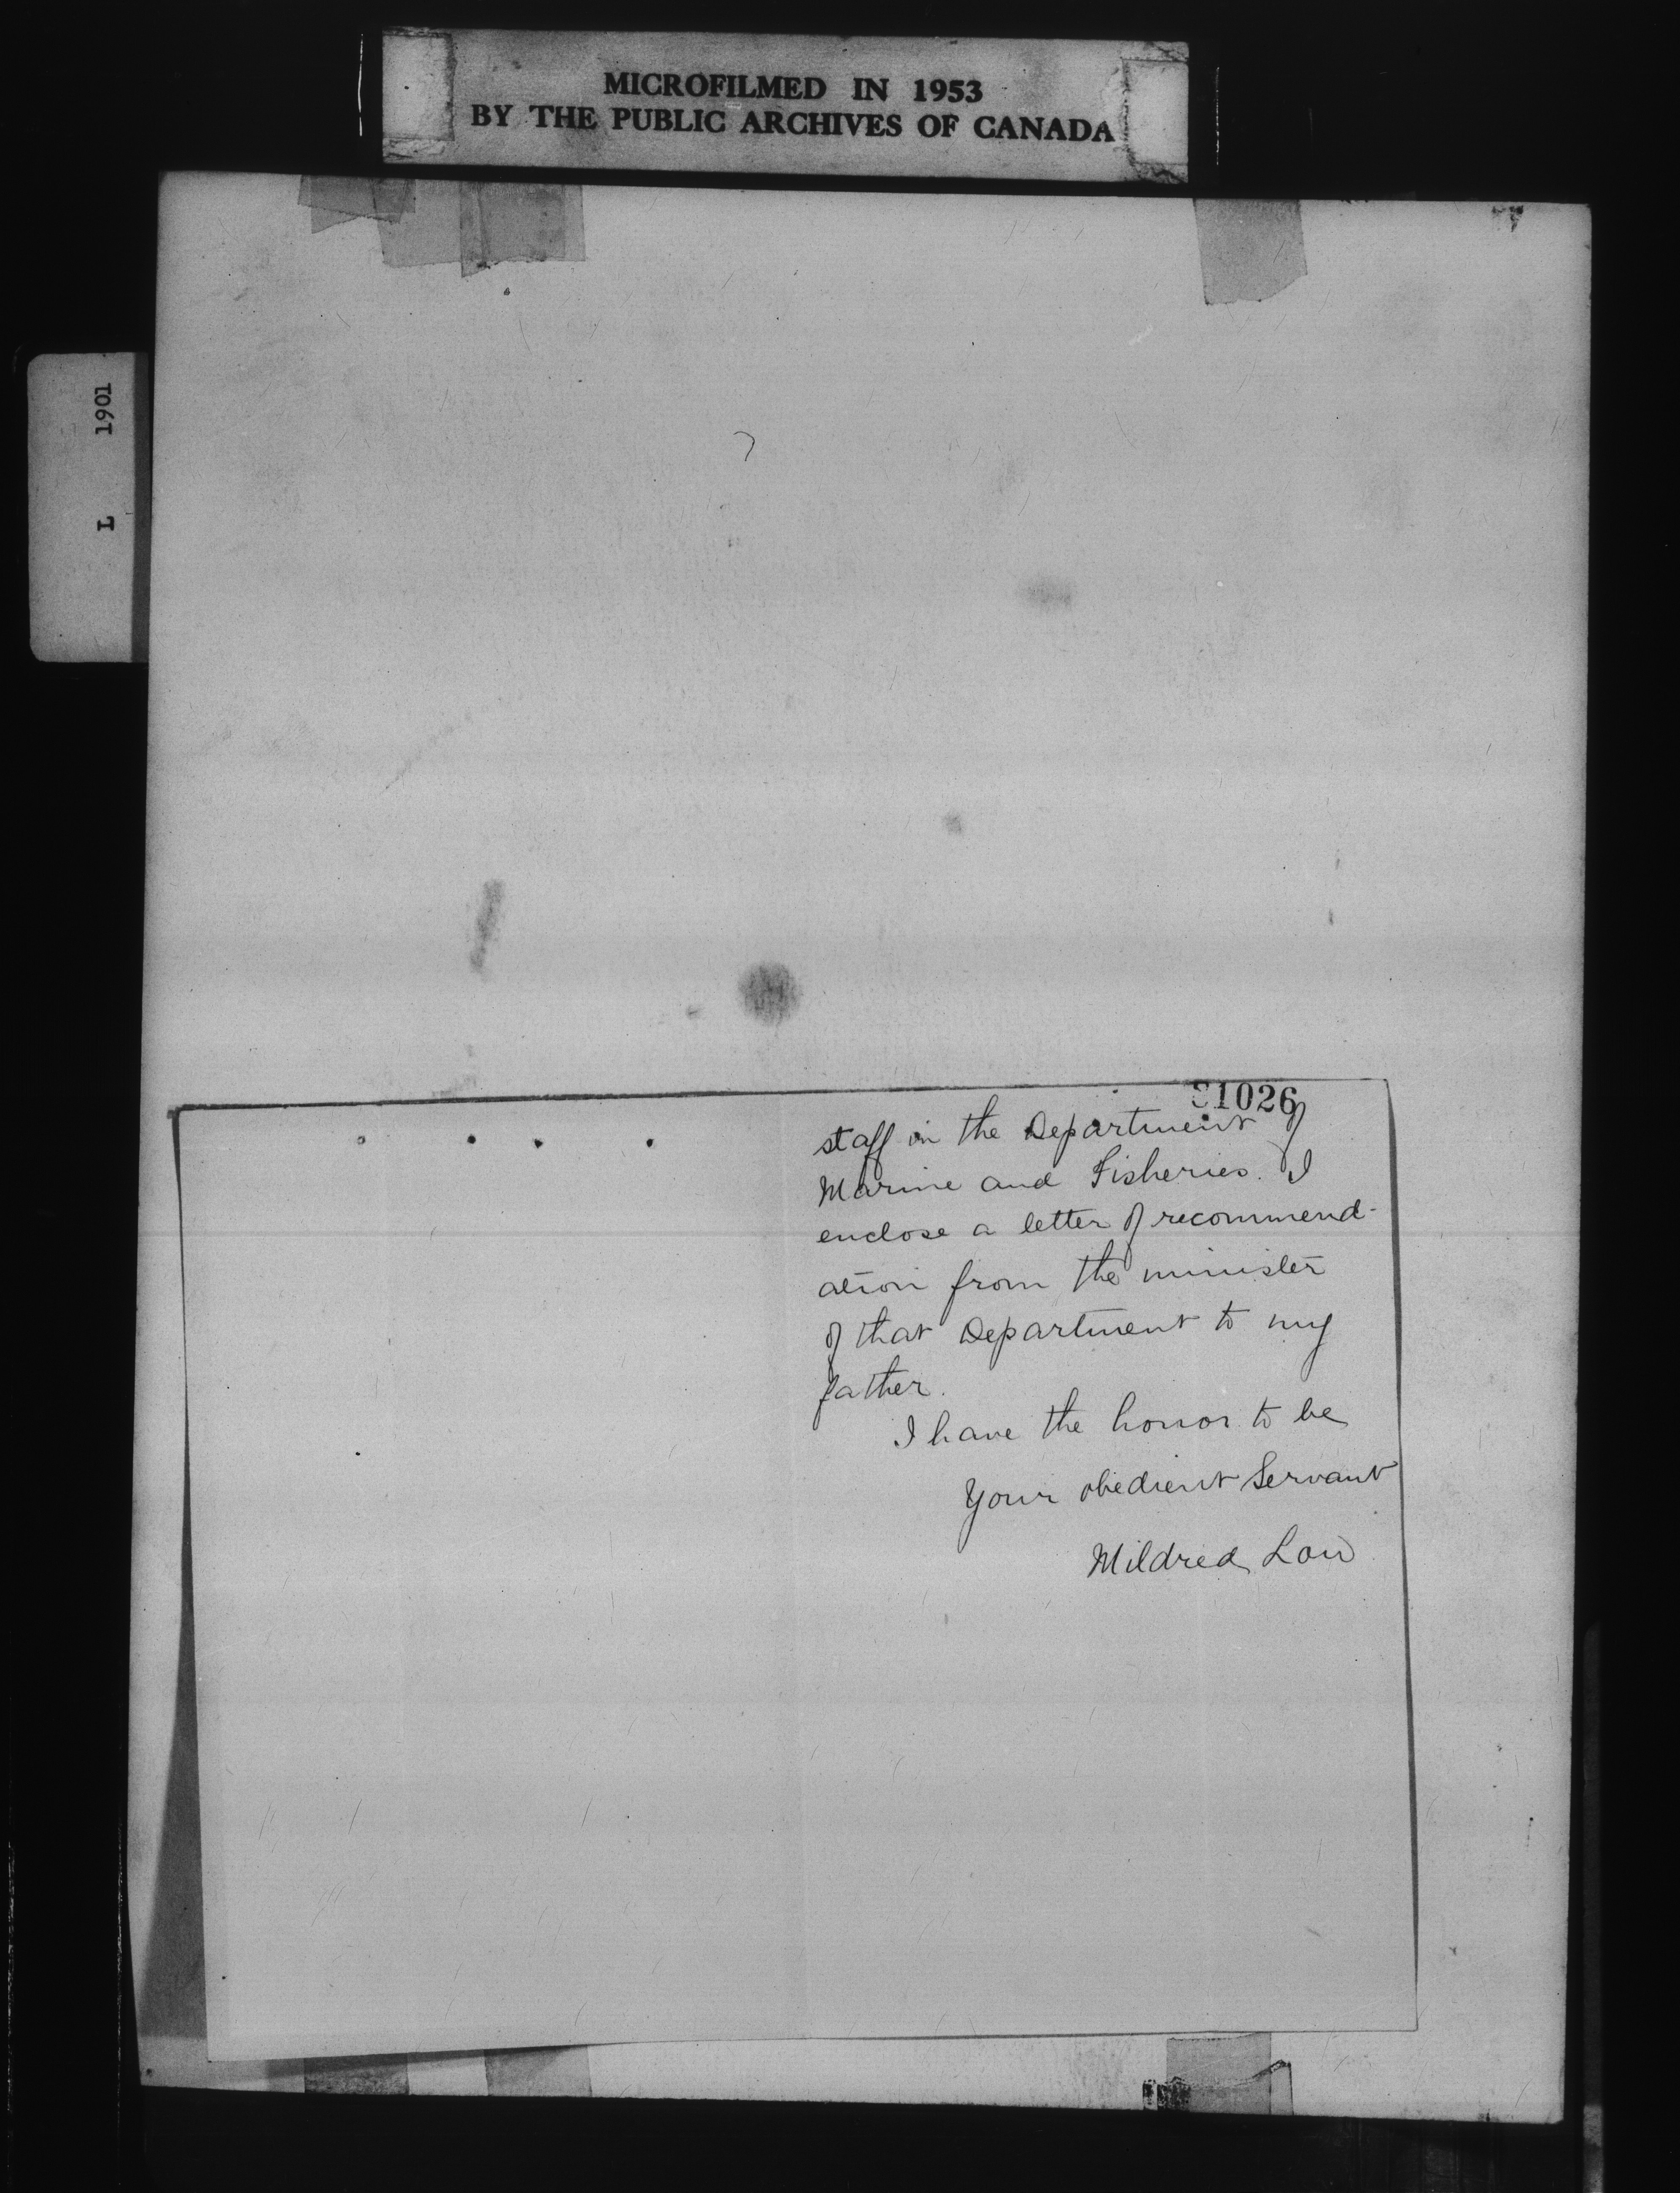 MICROFILMED IN 1953
BY THE PUBLIC ARCHIVES OF CANADA
L 1901
staff in the Department of
Marine and Fisheries. I
enclose a letter of recommend-
ation from the minister
of that Department to my
father.
I have the honor to be
Your obedient Servant
Mildred Low